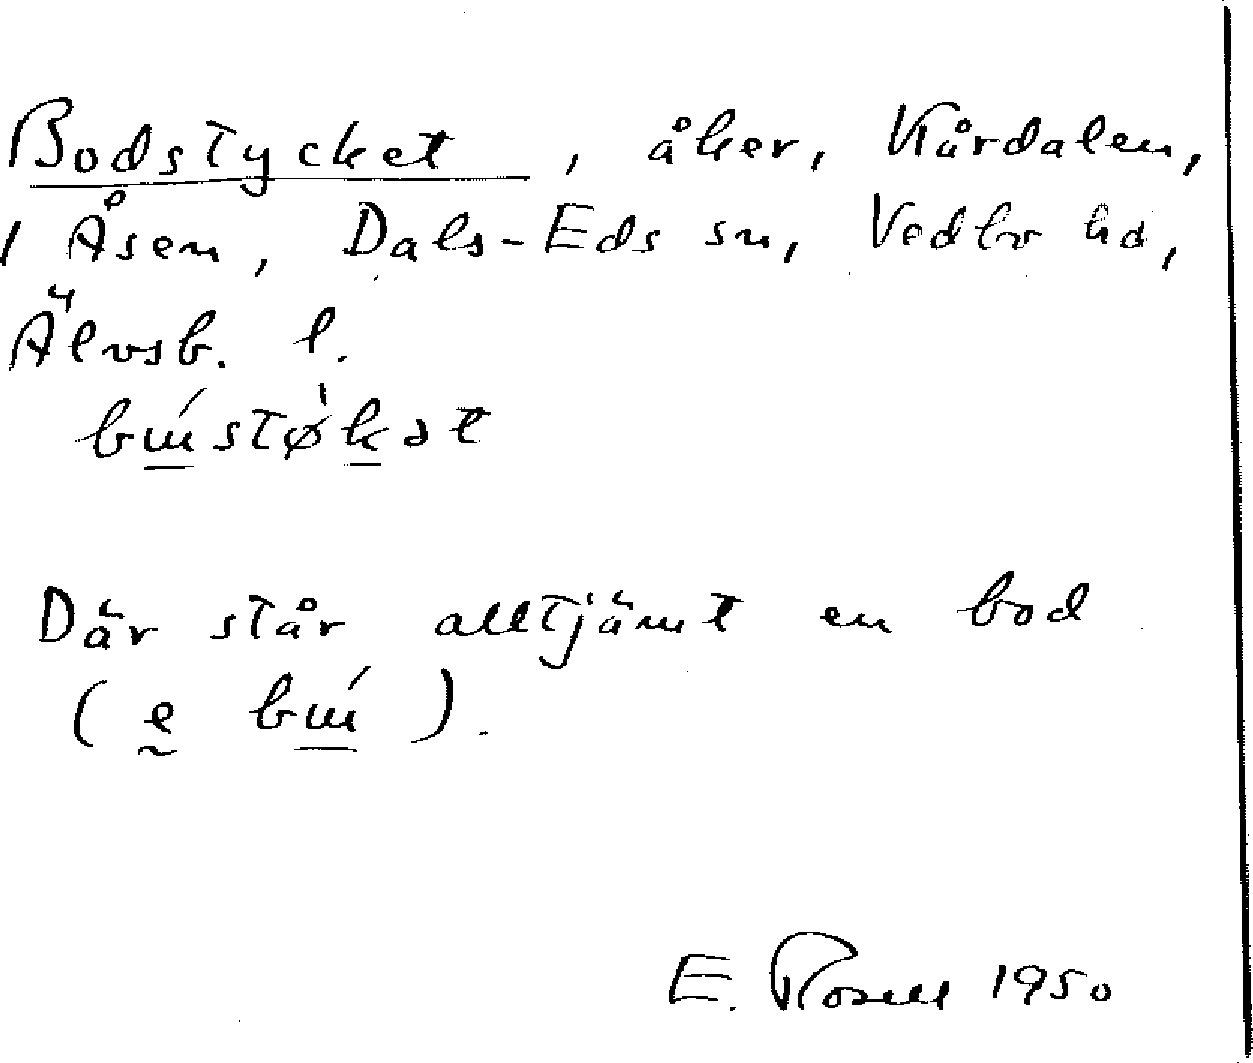 Bodstycket, åker, Kårdalen,
1 Åsen, Dals-Eds sn, Vedbo hd,
Älvsb. l.
bɯ́støkət
Där står alltjämt en bod
(e bɯ́).
E. Rosell 1950